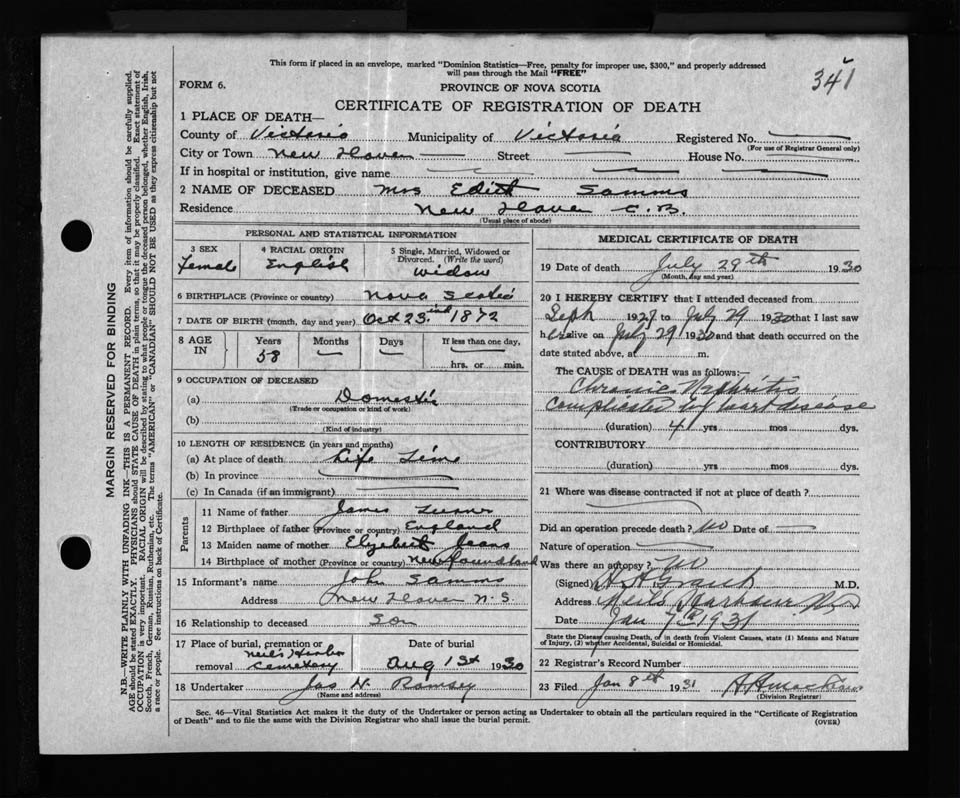 This form if placed in an envelope, marked "Dominion Statistics—Free, penalty for improper use, $300," and properly addressed
will pass through the Mail "FREE"
341
FORM 6.
PROVINCE OF NOVA SCOTIA
CERTIFICATE OF REGISTRATION OF DEATH
1 PLACE OF DEATH—
County of Victoria Municipality of Victoria Registered No.
(For use of Registrar General only)
City or Town New Haven Street House No.
If in hospital or institution, give name
2 NAME OF DECEASED Mrs Edith Samms
Residence New Haven C.B.
(Usual place of abode)
PERSONAL AND STATISTICAL INFORMATION
3 SEX Female
4 RACIAL ORIGIN English
5 Single, Married, Widowed or Divorced. (Write the word) widow
6 BIRTHPLACE (Province or country) Nova Scotia
7 DATE OF BIRTH (month, day, and year) Oct 23 1872
8 AGE IN Years 58 Months — Days — If less than one day, hrs. or min.
9 OCCUPATION OF DECEASED
(a) Domestic
(Trade or occupation or kind of work)
(b)
(Kind of industry)
10 LENGTH OF RESIDENCE (in years and months)
(a) At place of death Life Time
(b) In province
(c) In Canada (if an immigrant)
Parents
11 Name of father James
12 Birthplace of father (Province or country) England
13 Maiden name of mother Elyzebert Jeans
14 Birthplace of mother (Province or country) Newfoundland
15 Informant's name John Samms
Address New Haven N.S.
16 Relationship to deceased son
17 Place of burial, cremation or removal Neil's Harbor Cemetery
Date of burial Aug 1st 1930
18 Undertaker Jas N. Ramsey
(Name and address)
MEDICAL CERTIFICATE OF DEATH
19 Date of death July 29th 1930
(Month, day and year)
20 I HEREBY CERTIFY that I attended deceased from
Seph 1927 to July 29 1930 that I last saw
her alive on July 29 1930 and that death occurred on the
date stated above, at m.
The CAUSE OF DEATH was as follows:—
Chronic Nephritis
Complicated by heart disease
(duration) 4 yrs mos dys.
CONTRIBUTORY
(duration) yrs mos dys.
21 Where was disease contracted if not at place of death?
Did an operation precede death? No Date of —
Nature of operation
Was there an autopsy? No
(Signed) M.D.
Address Neils Harbour N.S
Date Jan 7th 1931
State the Disease causing Death, or in death from Violent Causes, state (1) Means and Nature
of Injury, (2) whether Accidental, Suicidal or Homicidal.
22 Registrar's Record Number
23 Filed Jan 8th 1931
(Division Registrar)
Sec. 46—Vital Statistics Act makes it the duty of the Undertaker or person acting as Undertaker to obtain all the particulars required in the "Certificate of Registration
of Death" and to file the same with the Division Registrar who shall issue the burial permit.
(OVER)
MARGIN RESERVED FOR BINDING
N.B.—WRITE PLAINLY WITH UNFADING INK—THIS IS A PERMANENT RECORD. Every item of information should be carefully supplied.
AGE should be stated EXACTLY. PHYSICIANS should STATE CAUSE OF DEATH in plain terms, so that it may be properly classified. Exact statement of
OCCUPATION is very important. RACIAL ORIGIN will be described by stating to what people or tongue the deceased person belonged, whether English, Irish,
Scotch, French, German, Russian, Ruthenian, etc. The terms "AMERICAN" or "CANADIAN" SHOULD NOT BE USED as they express citizenship but not
a race or people. See instructions on back of Certificate.